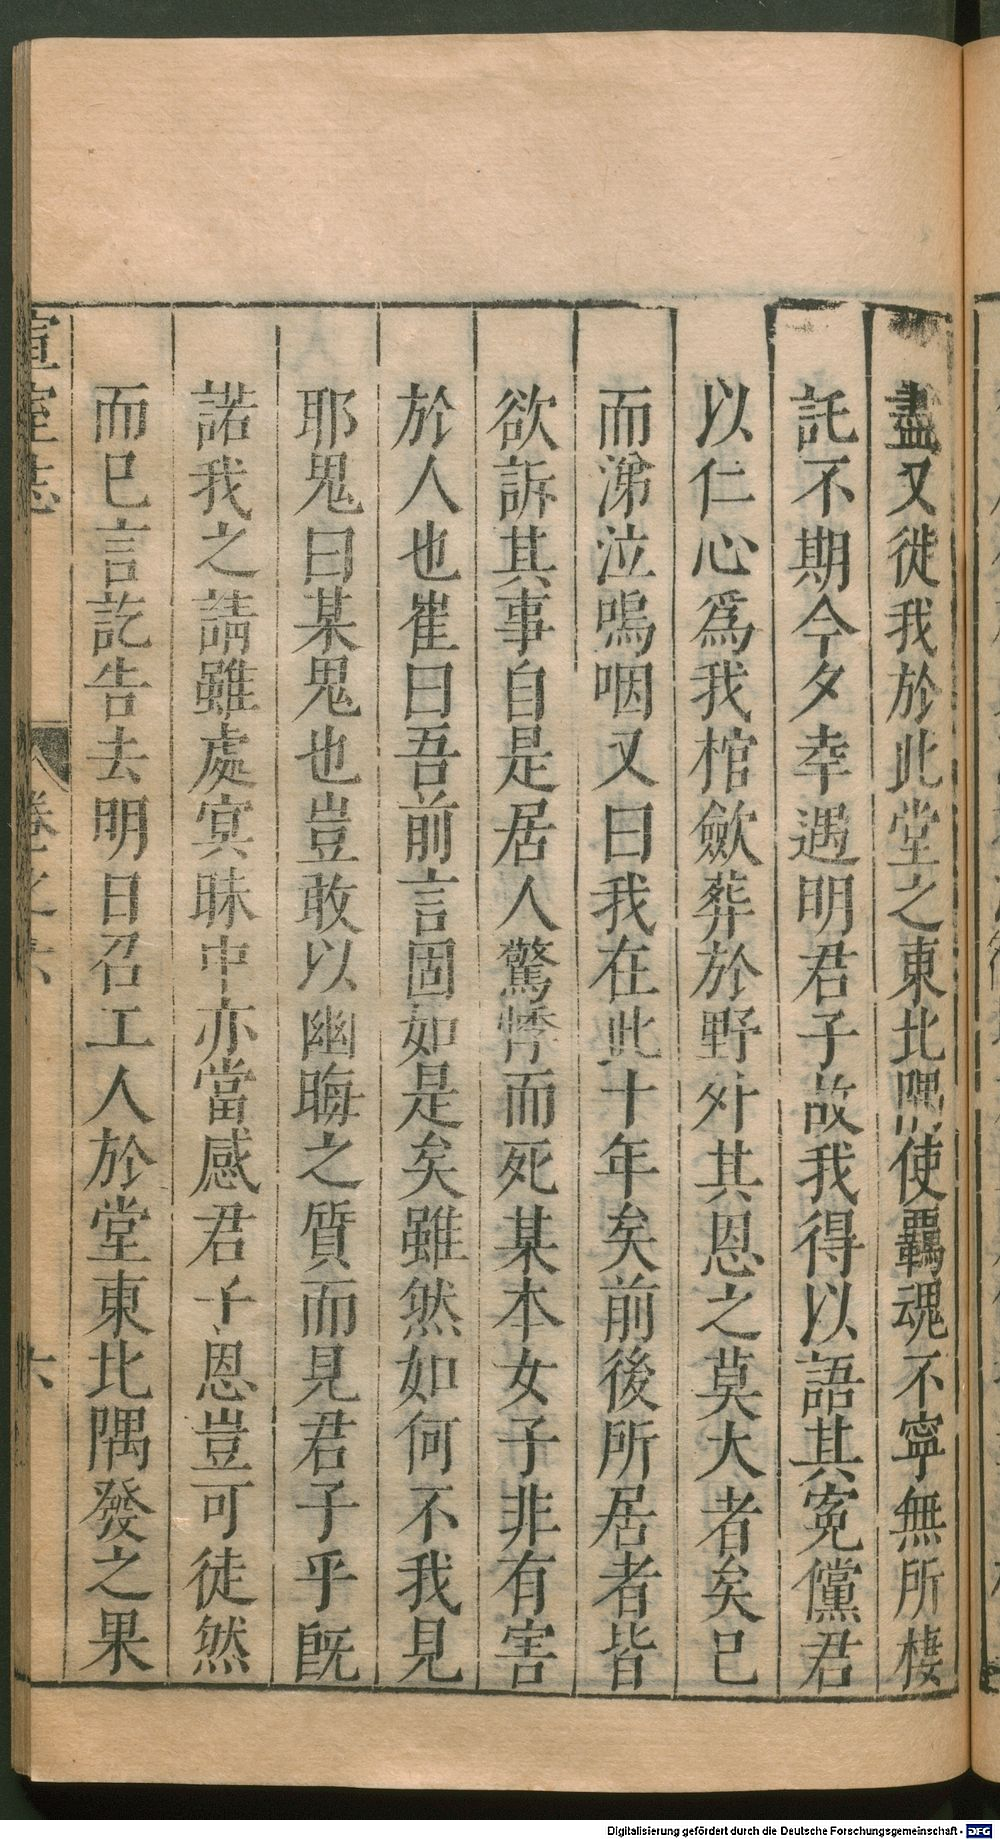 盡又徙我於此堂之東北隅使羈魂不寧無所棲
託不期今夕幸遇明君子故我得以語其寃儻君
以仁心爲我棺歛葬於野外其恩之莫大者矣已
而涕泣嗚咽又曰我在此十年矣前後所居者皆
欲訴其事自是居人驚悸而死某本女子非有害
於人也崔曰吾前言固如是矣雖然如何不我見
耶鬼曰某鬼也豈敢以幽晦之質而見君子乎旣
諾我之請雖處㝠昧中亦當感君子恩豈可徒然
而已言訖告去明日召工人於堂東北隅發之果
宣室志 卷之六 六
Digitalisierung gefördert durch die Deutsche Forschungsgemeinschaft - DFG